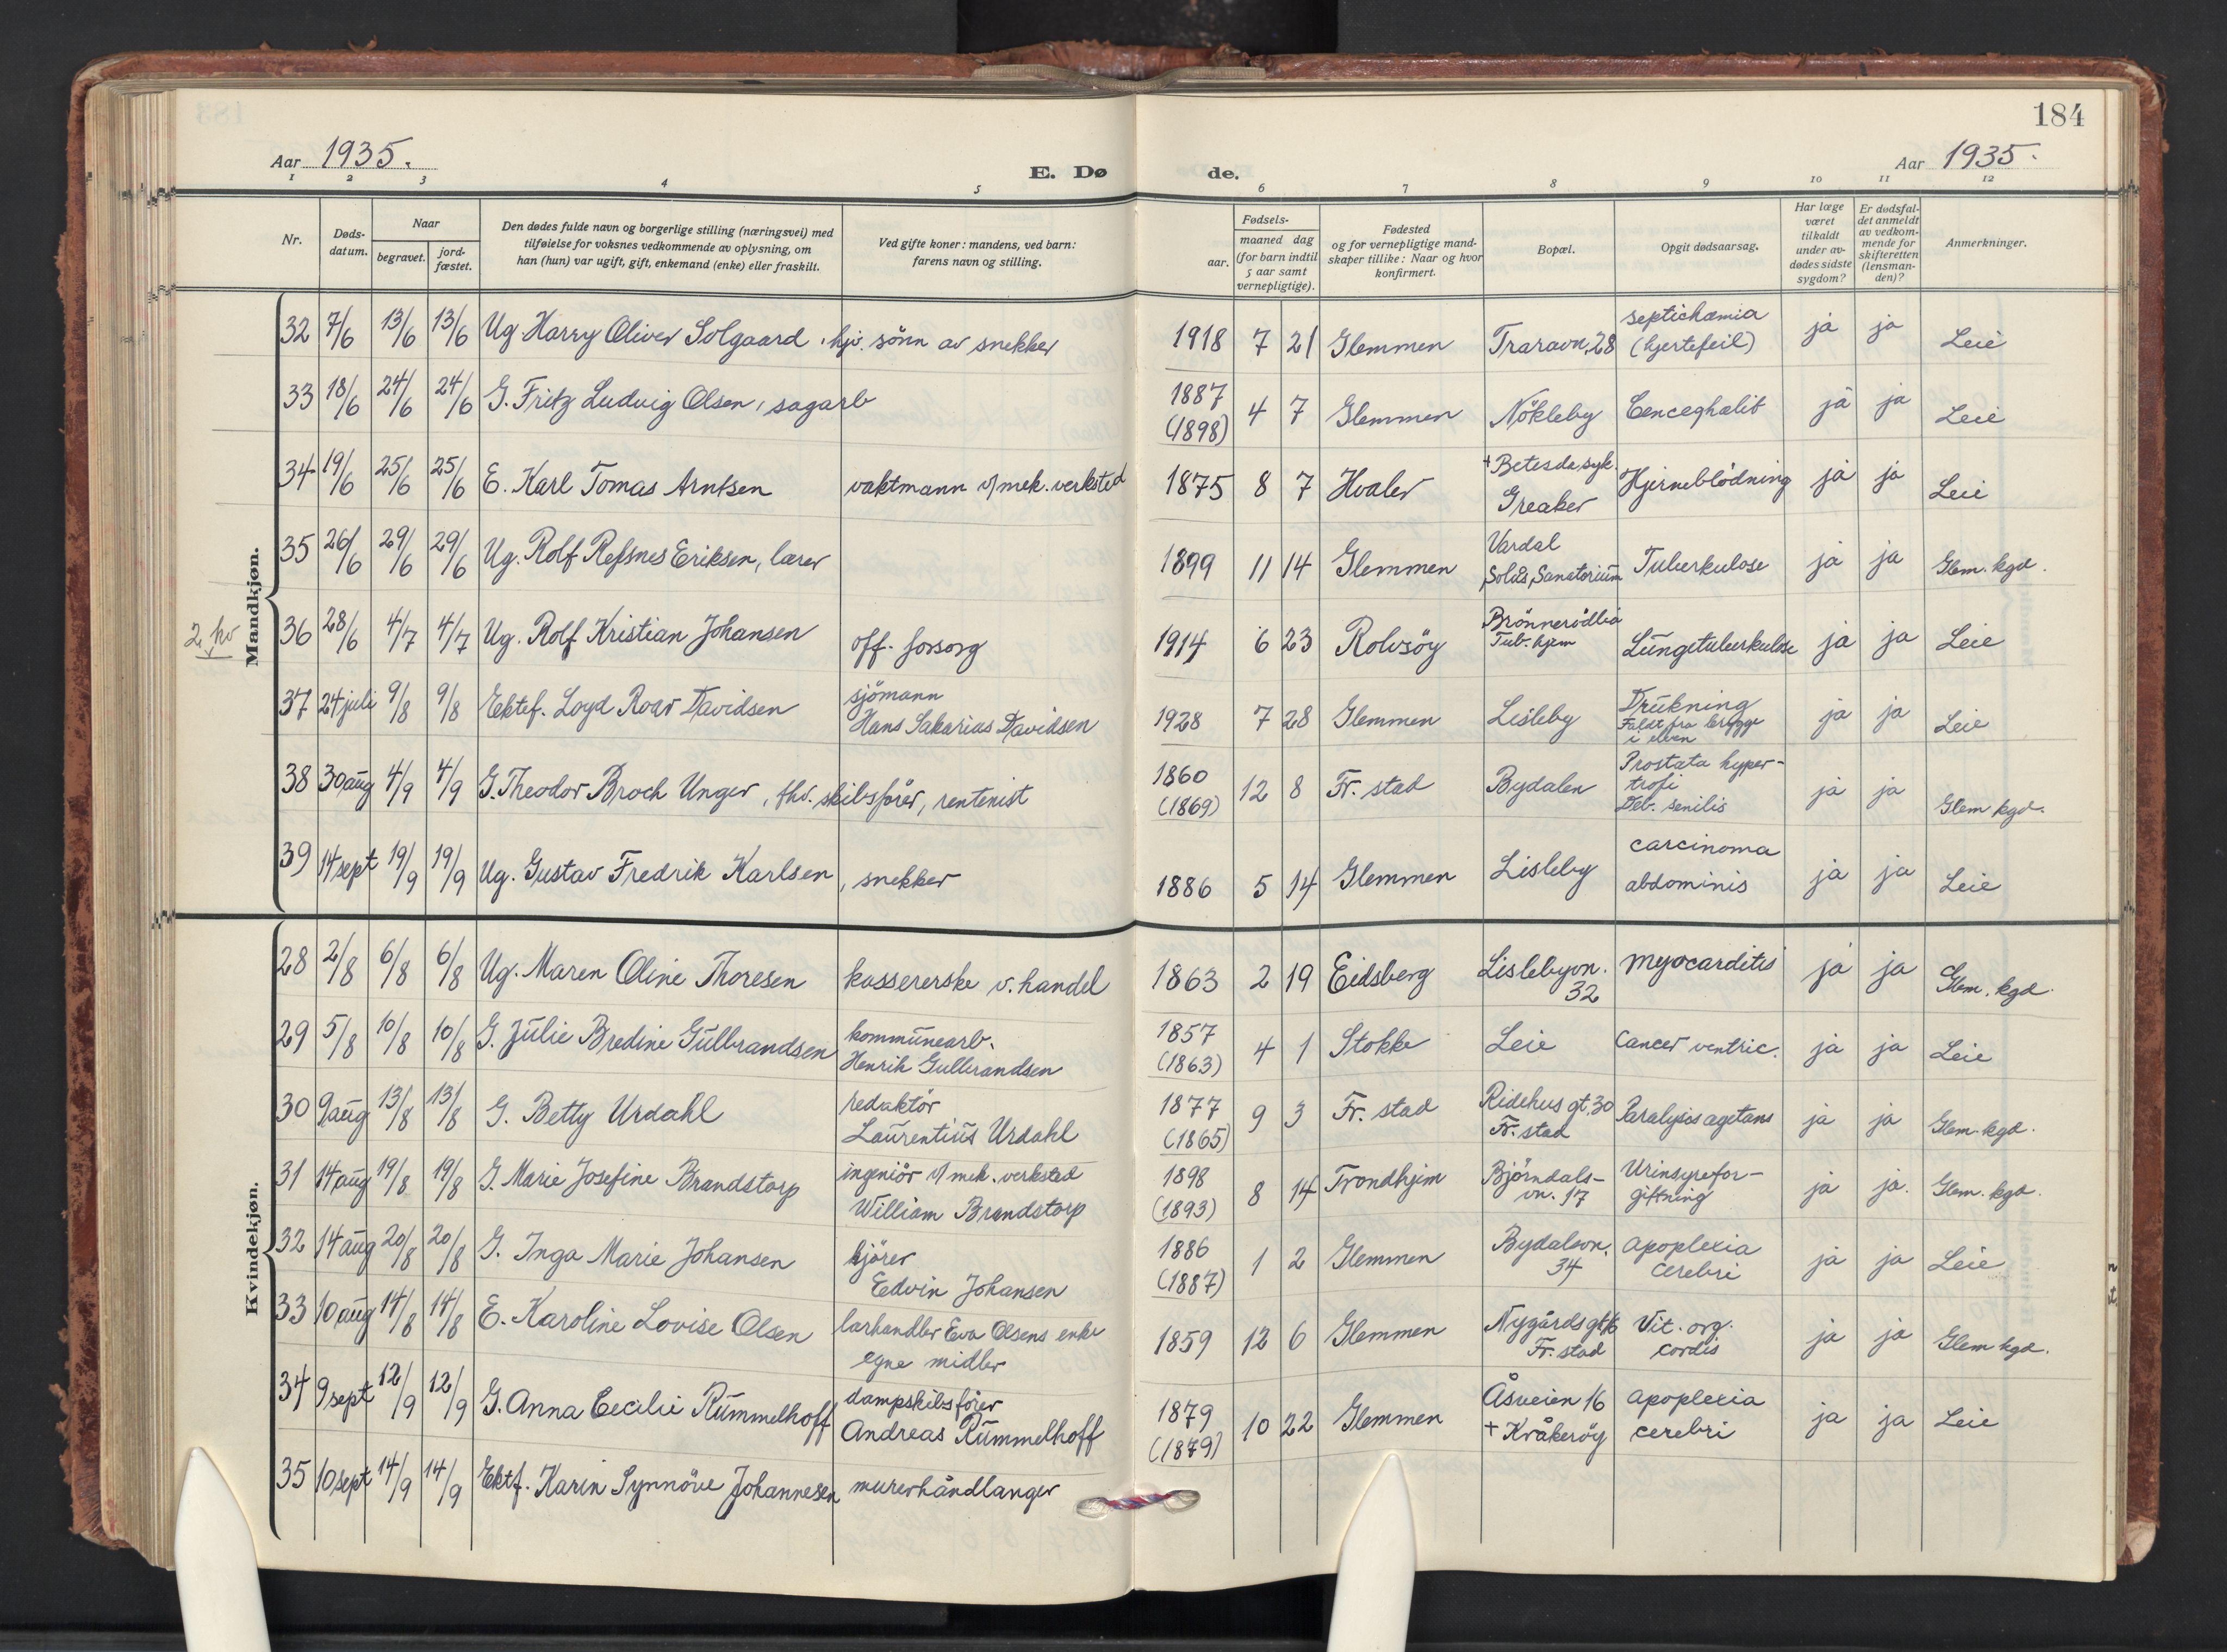 184
Aar 1935. E. Døde. Aar 1935.
1 2 3 4 5 6 7 8 9 10 11 12
Nr. Dødsdatum. Naar begravet. jordfæstet. Den dødes fulde navn og borgerlige stilling (næringsvei) med tilføielse for voksnes vedkommende av oplysning, om han (hun) var ugift, gift, enkemand (enke) eller fraskilt. Ved gifte koner: mandens, ved barn: farens navn og stilling. Fødsels- aar. maaned dag (for barn indtil 5 aar samt vernepligtige). Fødested og for vernepligtige mandskaper tillike: Naar og hvor konfirmert. Bopæl. Opgit dødsaarsag. Har læge været tilkaldt under avdødes sidste sygdom? Er dødsfaldet anmeldt av vedkommende for skifteretten (lensmanden)? Anmerkninger.
Mandkjøn.
32 7/6 13/6 13/6 Ug. Harry Oliver Solgaard, hjv. sönn av snekker 1918 7 21 Glemmen Traravn. 28 septichæmia (hjertefeil) ja ja Leie
33 18/6 24/6 24/6 G. Fritz Ludvig Olsen, sagarb 1887 (1898) 4 7 Glemmen Nökleby ja ja Leie
34 19/6 25/6 25/6 E. Karl Tomas Arntsen vaktmann v/mek. verksted 1875 8 7 Hvaler + Betesda, syk. Greaker Hjerneblödning ja ja Leie
35 26/6 29/6 29/6 Ug. Rolf Refsnes Eriksen, lærer 1899 11 14 Glemmen Vardal Solås, Sanatorium Tuberkulose ja ja Glem. kgd.
2 kv
36 28/6 4/7 4/7 Ug. Rolf Kristian Johansen off. forsorg 1914 6 23 Rolvsöy Brönnerödlia Tub. hjem Lungetuberkulose ja ja Leie
37 24 juli 9/8 9/8 Ektef. Loyd Roar Davidsen sjömann Hans Sakarias Davidsen 1928 7 28 Glemmen Lisleby Drukning Faldt fra brygge i elven ja ja Leie
38 30 aug 4/9 4/9 G. Theodor Broch Unger, fhv. skibsfører, rentenist 1860 (1869) 12 8 Fr. stad Bydalen Prostata hypertrofi Deb. senilis ja ja Glem kgd.
39 14 sept 19/9 19/9 Ug. Gustav Fredrik Karlsen, snekker 1886 5 14 Glemmen Lisleby carcinoma abdominis ja ja Leie
Kvindekjøn.
28 2/8 6/8 6/8 Ug. Maren Oline Thoresen kassererske v. handel 1863 2 19 Eidsberg Lislebyvn. 32 myocarditis ja ja Glem. kgd.
29 5/8 10/8 10/8 G. Julie Bredine Gulbrandsen kommunearb. Henrik Gulbrandsen 1857 (1863) 4 1 Stokke Leie Cancer ventric. ja ja Leie
30 9 aug 13/8 13/8 G. Betty Urdahl redaktör Laurentius Urdahl 1877 (1865) 9 3 Fr. stad Ridehus gt. 30 Fr. stad Paralysis agetans ja ja Glem. kgd.
31 14 aug 19/8 19/8 G. Marie Josefine Brandstorp ingeniör v/ mek. verksted William Brandstorp 1898 (1893) 8 14 Trondhjem Björndalsvn. 17 Urinsyreforgiftning ja ja. Glem. kgd.
32 14 aug 20/8 20/8 G. Inga Marie Johansen kjörer Edvin Johansen 1886 (1887) 1 2 Glemmen Bydalsvn. 34 apoplexia cerebri ja ja Leie
33 10 aug 14/8 14/8 E. Karoline Lovise Olsen Olsens enke egne midler 1859 12 6 Glemmen Nygårdsgt 16 Fr. stad Vit. org. cordis ja ja Glem kgd.
34 9 sept 12/9 12/9 G. Anna Cecilie Rummelhoff dampskibsfører Andreas Rummelhoff 1879 (1879) 10 22 Glemmen Åsveien 16 + Kråkeröy apoplexia cerebri ja ja Leie
35 10 sept 14/9 14/9 Ektf. Karin Synnöve Johannesen murerhåndlanger